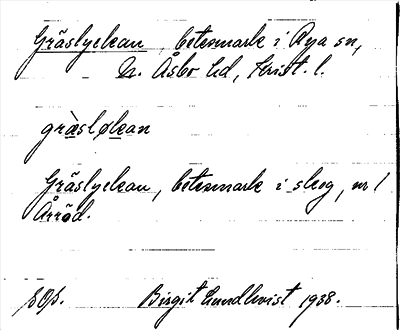 Gräslyckan, betesmark i Rya sn,
N. Åsbo hd, Krist. l.
gräsløkan
Gräslyckan, betesmark i skog, nr 1
Årröd.
Birgit Lundkvist 1938.